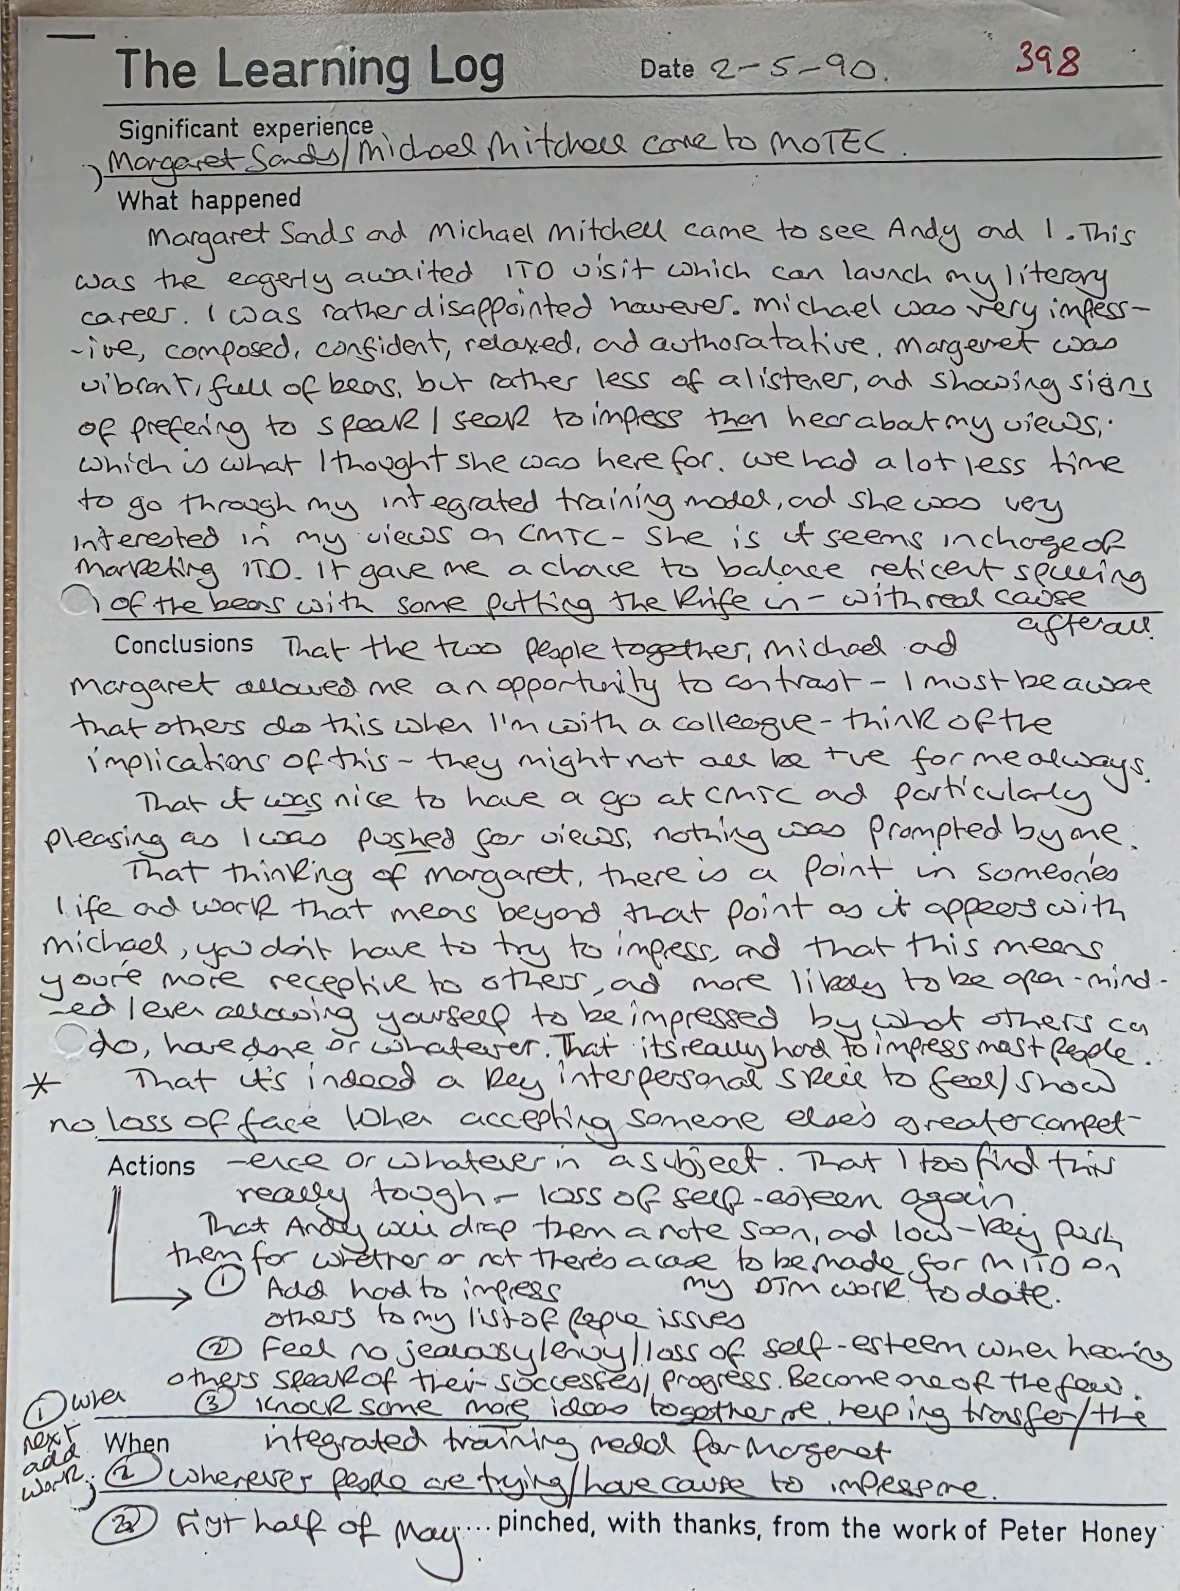 The Learning Log Date 2-5-90. 398
Significant experience
Margaret Sands/Michael Mitchell came to MOTEC.
What happened
Margaret Sands and Michael Mitchell came to see Andy and I. This
was the eagerly awaited ITD visit which can launch my literary
career. I was rather disappointed however. Michael was very impess-
-ive, composed, confident, relaxed, and authoratative. Margeret was
vibrant, full of beans, but rather less of a listener, and showing signs
of prefering to speak / seek to impress than hear about my views,
which is what I thought she was here for. We had a lot less time
to go through my integrated training model, and she was very
interested in my views on CMTC - she is it seems in charge of
marketing ITD. It gave me a chance to balance reticent spilling
of the beans with some putting the knife in - with real cause
after all.
Conclusions That the two people together, Michael and
Margaret allowed me an opportunity to contrast - I must be aware
that others do this when I'm with a colleague - think of the
implications of this - they might not all be +ve for me always.
That it was nice to have a go at CMTC and particularly
pleasing as I was pushed for views, nothing was prompted by me.
That thinking of Margaret, there is a point in someone's
life and work that means beyond that point as it appears with
Michael, you don't have to try to impress, and that this means
you're more receptive to others, and more likely to be open-mind-
-ed / even allowing yourself to be impressed by what others can
do, have done or whatever. That its really hard to impress most people.
* That it's indeed a key interpersonal skill to feel/show
no loss of face when accepting someone else's greater compet-
Actions -ence or whatever in a subject. That I too find this
really tough - loss of self-esteem again.
That Andy will drop them a note soon, and low-key push
them for whether or not there's a case to be made for MITD on
my DTM work to date.
① Add hard to impress
others to my list of people issues
② Feel no jealousy/envy/loss of self-esteem when hearing
others speak of their successes/progress. Become one of the few.
③ Knock some more ideas together re helping transfer/the
integrated training model for Margeret
When
① When
next
add
work.
② Whenever people are trying/have cause to impress me.
③ First half of May ... pinched, with thanks, from the work of Peter Honey